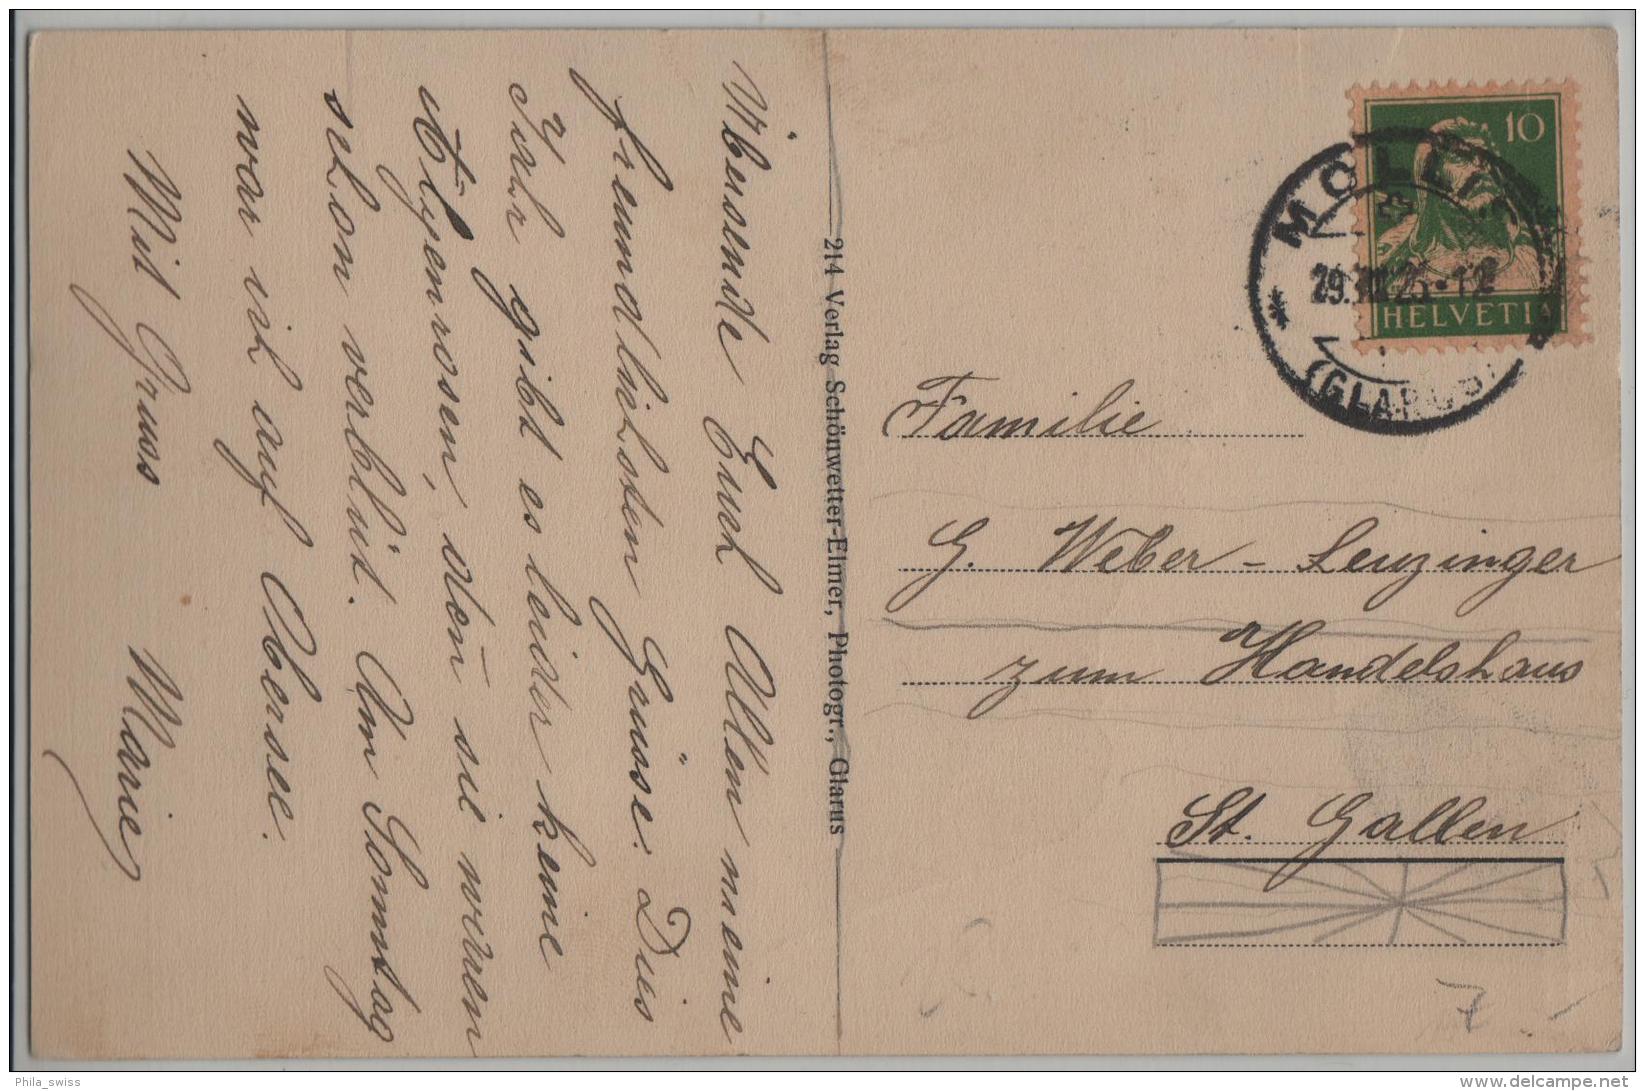 Übersende Euch Allen meine
freundlichsten Grüsse. Dies
Jahr gibt es leider keine
Alpenrosen, den sie waren
schon verblüt. Am Sonntag
war ich auf Obersee.
Mit Gruss Marie
214 Verlag Schönwetter-Elmer, Photogr., Glarus
10
HELVETIA
MOLLIS
(GLARUS)
Familie
G. Weber - Leuzinger
zum Handelshaus
St. Gallen
7
Phila_swiss
delcampe.net